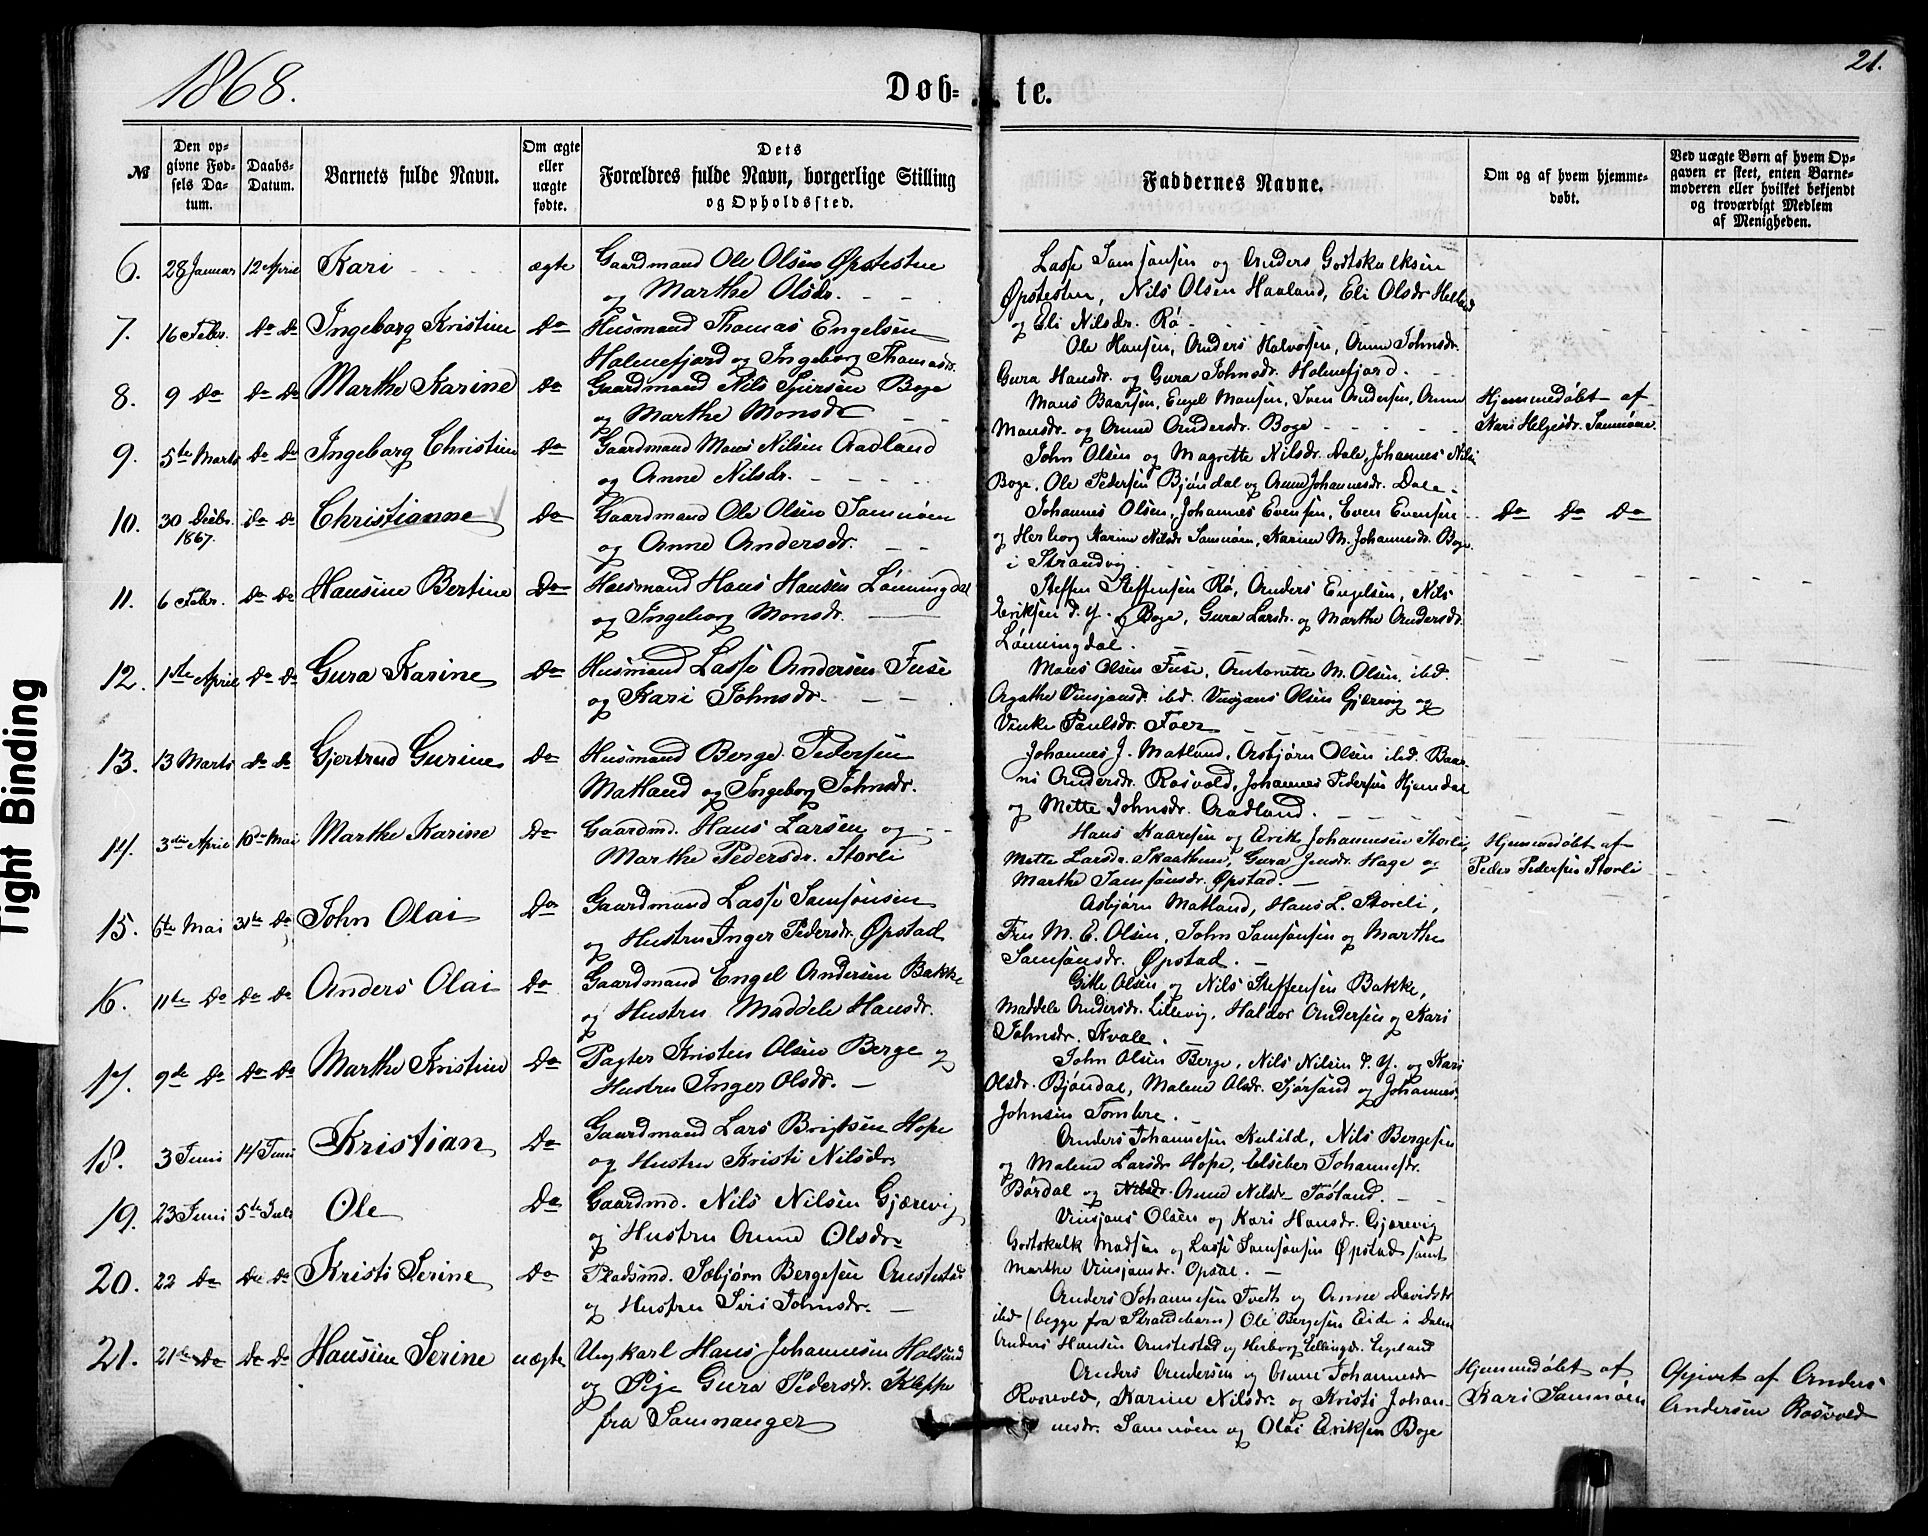 1868.
21.
Døb- te.
№
Den opgivne Fødsels Datum.
Daabs-Datum.
Barnets fulde Navn.
Om ægte eller uægte fødte.
Dets Forældres fulde Navn, borgerlige Stilling og Opholdssted.
Faddernes Navne.
Om og af hvem hjemmedøbt.
Ved uægte Børn af hvem Opgaven er skeet, enten Barnemoderen eller hvilket bekjendt og troværdigt Medlem af Menigheden.
6. 28 Januar 12 April Kari ægte Gaardmand Ole Olsen Øpstestue
og Marthe Olsdr.
Lasse Samsonsen og Anders Godtskalksen
Øpstestue, Nils Olsen Haaland, Eli Olsdr Helland
og Eli Nilsdr. Rø
7. 16 Febr. Do Do Ingeborg Kristine Do Husmand Thomas Engelsen
Holmefjord og Ingeborg Thomasdr.
Ole Hansen, Anders Halvorsen, Anne Johnsdr.
Gura Hansdr. og Gura Johnsdr. Holmefjord.
8. 9 Do Do Do Marthe Karine Do Gaardmand Nils Sjursen Boge
og Marthe Monsdr
Mons Baarsen, Engel Monsen, Sven Andersen, Anne
Monsdr. og Anna Andersdr. Boge
Hjemmedøbt af
Kari Helgesdr. Samnøen
9. 5te Marts Do Do Ingeborg Christine Do Gaardmand Mons Nilsen Aadland
og Anne Nilsdr.
John Olsen og Magrette Nilsdr. Dale, Johannes Nilsen
Boge, Ole Pedersen Bjøndal og Anna Johannesdr. Dale.
10. 30 Decbr. 1867. Do Do Christianne Do Gaardmand Ole Olsen Samnøen
og Anne Andersdr.
Johannes Olsen, Johannes Evensen, Even Evensen
og Herborg Karine Nilsdr Samnøen, Karine M. Johannesdr. Boge
i Strandvig.
Do Do Do
11. 6 Febr. Do Do Hansine Bertine Do Husmand Hans Hansen Lønningdal
og Ingeborg Monsdr.
Steffen Steffensen Rø, Anders Engelsen, Nils
Eriksen d. Y. Boge, Gura Larsdr. og Marthe Andersdr.
Lønningdal.
12. 1ste April Do Do Gura Karine Do Husmand Lasse Andersen Fuse
og Kari Johnsdr.
Mons Olsen Fuse, Antonette M. Olsen, ibd.
Agathe Vinsjansd. ibd. Vinsjans Olsen Gjærevig og
Vinke Paulsdr. Foer
13. 13 Marts Do Do Gjertrud Gurine Do Husmand Berge Pedersen
Matland og Ingeborg Johnsdr.
Johannes J. Matland, Asbjørn Olsen ibd. Baar-
ni Andersdr. Rosvold, Johannes Pedersen Hjemdal
og Mette Johnsdr. Aadland.
14. 3die April 10de Mai Marthe Karine Do Gaardmd. Hans Larsen og
Marthe Pedersdr. Storli
Hans Kaaresen og Erik Johannesen Storli,
Mette Larsdr. Skaatheim, Gura Jensdr. Hage og
Marthe Samsonsdr. Øpstad.
Hjemmedøbt af
Peder Pedersen Storli
15. 6te Mai 31te Do John Olai Do Gaardmand Lasse Samsonsen
og Hustru Inger Pedersdr. Øpstad
Asbjørn Matland, Hans L. Storeli,
Fru M. E. Olsen, John Samsonsen og Marthe
Samsonsdr. Øpstad.
16. 11te Do Do Do Anders Olai Do Gaardmand Engel Andersen Bakke
og Hustru Maddele Hansdr.
Gitle Olsen og Nils Steffensen Bakke,
Maddele Andersdr. Lillevig, Haldor Andersen og Kari
Johnsdr. Kvale.
17. 9de Do Do Do Marthe Kristine Do Pagter Kristen Olsen Berge og
Hustru Inger Olsdr.
John Olsen Berge, Nils Nilsen d. Y. og Kari
Olsdr. Bjøndal, Malene Olsdr. Sjørsand og Johannes
Johnsen Tombre.
18. 3 Juni 14 Juni Kristian Do Gaardmand Lars Brigtsen Hope
og Hustru Kristi Nilsdr.
Anders Johannesen Kulild, Nils Bergesen
og Malene Larsdr Hope, Elseber Johannesdr.
Børdal og Nilsdr. Anna Nilsdr Tøsland.
19. 23 Juni 5te Juli Ole Do Gaardmd. Nils Nilsen Gjærevig
og Hustru Anna Olsdr
Vinsjans Olsen og Kari Hansdr. Gjærevig
Godtskalk Madsen og Lasse Samsonsen Øpstad samt
Marthe Vinsjansdr. Opsal.
20. 22 Do Do Do Kristi Serine Do Pladsmd. Sebjørn Bergesen Anstestad
og Hustru Siri Johnsdr.
Anders Johannesen Tvedt og Anne Davidsdr
ibd (begge fra Strandebarm) Ole Bergesen Eide i Dalen
Anders Hansen Anstestad og Herborg Ellingdr. Egeland
21. 21de Do Do Do Hansine Serine uægte Ungkarl Hans Johannesen Halsund
og Pige Gura Pedersdr. Kleppe
fra Samnanger
Anders Andersen og Anne Johannesdr
Rosvold, Karine Nilsdr og Kristi Johan-
nesdr. Samnøen og Olai Eriksen Boge
Hjemmedøbt af
Kari Samnøen
Opgivet af Anders
Andersen Rosvold
Tight Binding